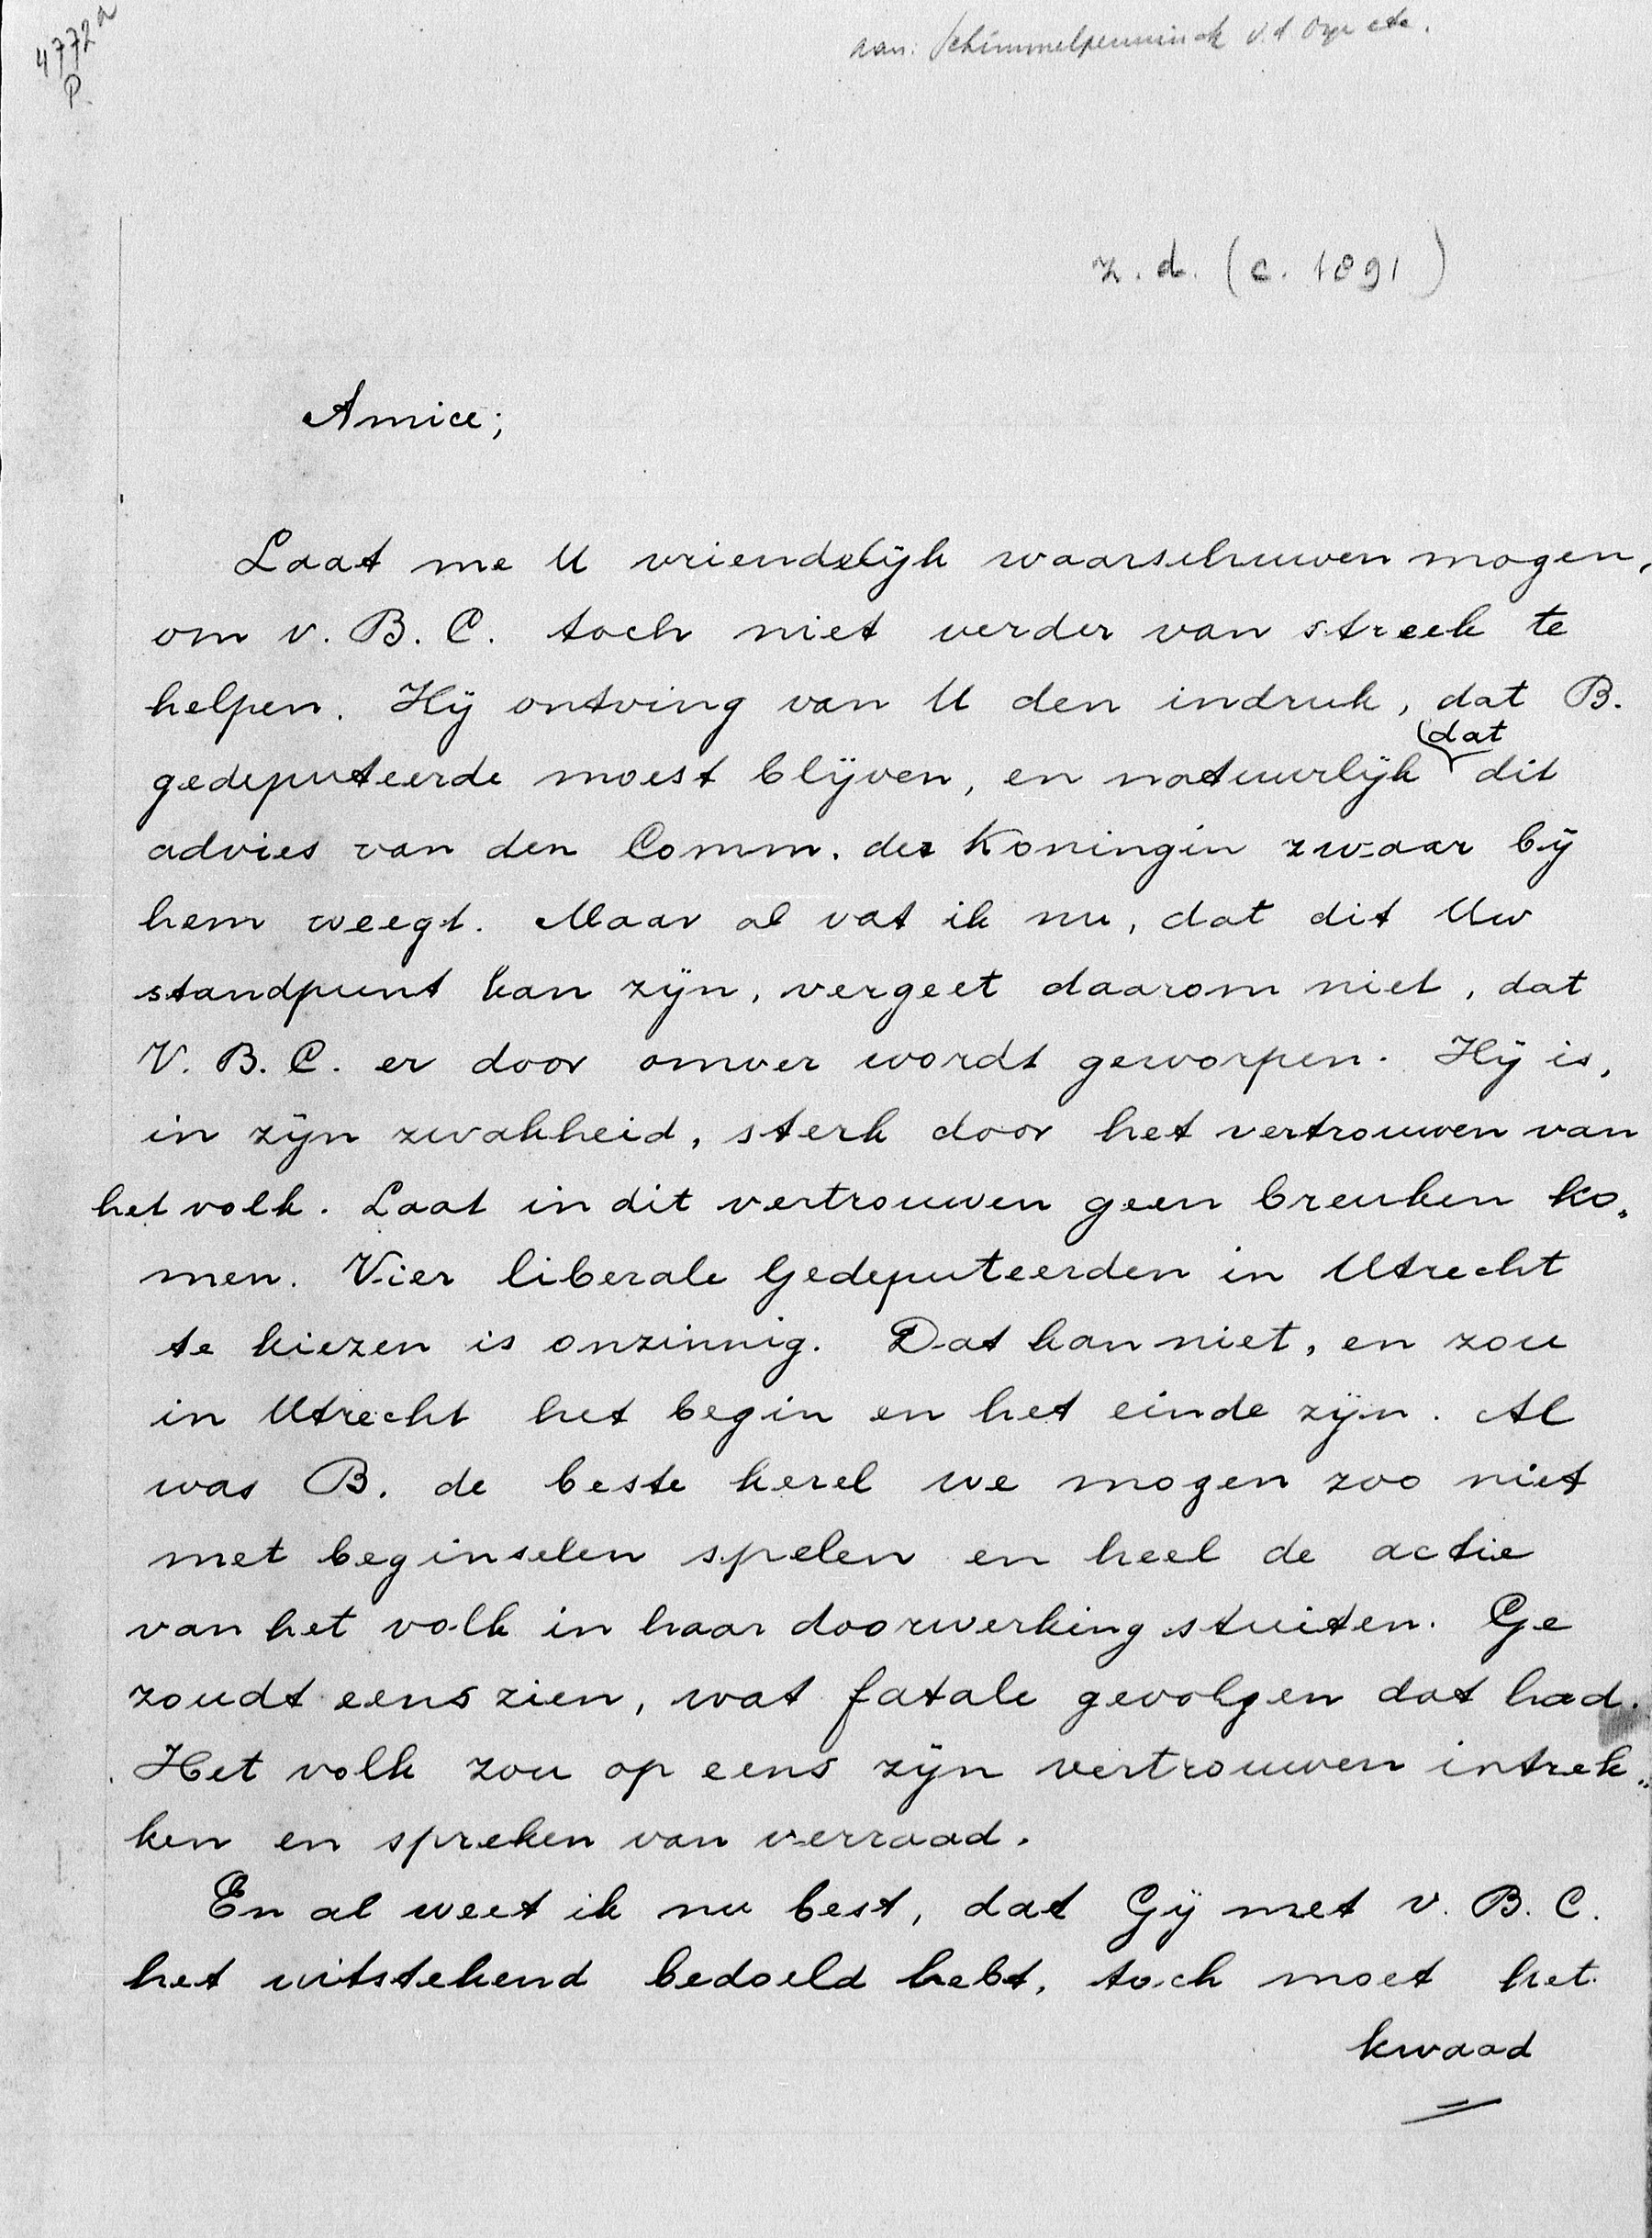 4772a
P.
aan: Schimmelpenninck v. d. Oye etc.
z. d. (c. 1891)
Amice;
Laat me U vriendelijk waarschuwen mogen,
om v. B. C. toch niet verder van streek te
helpen. Hij ontving van U den indruk, dat B.
gedeputeerde moest blijven, en natuurlijk dat dit
advies van den Comm. der Koningin zwaar bij
hem weegt. Maar al vat ik nu, dat dit Uw
standpunt kan zijn, vergeet daarom niet, dat
V. B. C. er door omver wordt geworpen. Hij is,
in zijn zwakheid, sterk door het vertrouwen van
het volk. Laat in dit vertrouwen geen breuken ko„
men. Vier liberale Gedeputeerden in Utrecht
te kiezen is onzinnig. Dat kan niet, en zou
in Utrecht het begin en het einde zijn. Al
was B. de beste kerel we mogen zoo niet
met beginselen spelen en heel de actie
van het volk in haar doorwerking stuiten. Ge
zoudt eens zien, wat fatale gevolgen dat had.
Het volk zou op eens zijn vertrouwen intrek„
ken en spreken van verraad.
En al weet ik nu best, dat Gij met v. B. C.
het uitstekend bedoeld hebt, toch moet het
kwaad